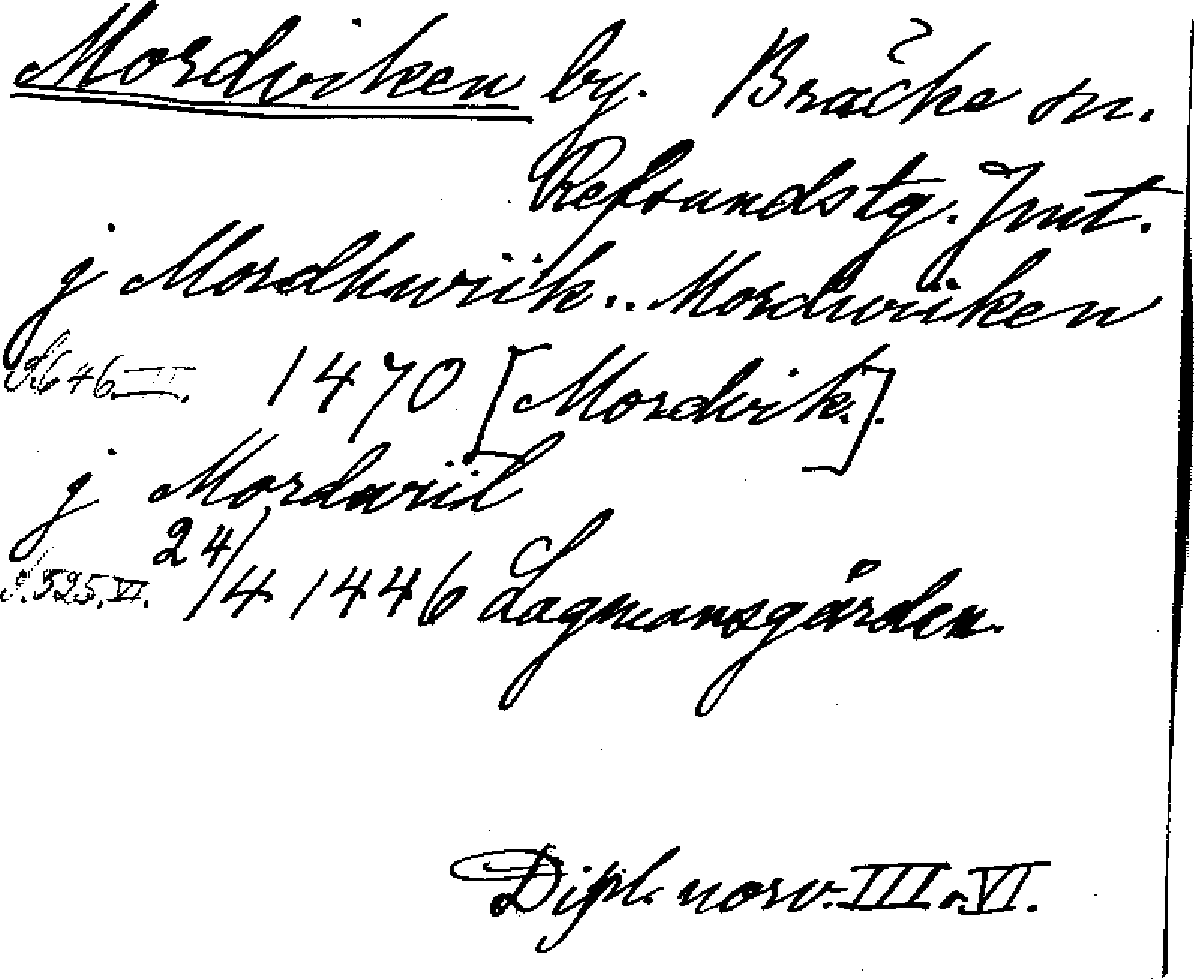 Mordviken by. Bräcke sn.
Refsunds tg. Jmt.
j Mordhwiik.. Mordwiiken
S. 646 III. 1470 [Mordvik.].
j Mordwiil
S. 525. VI. 24/4 1446 Lagmansgården.
Dipl. norv. III o. VI.